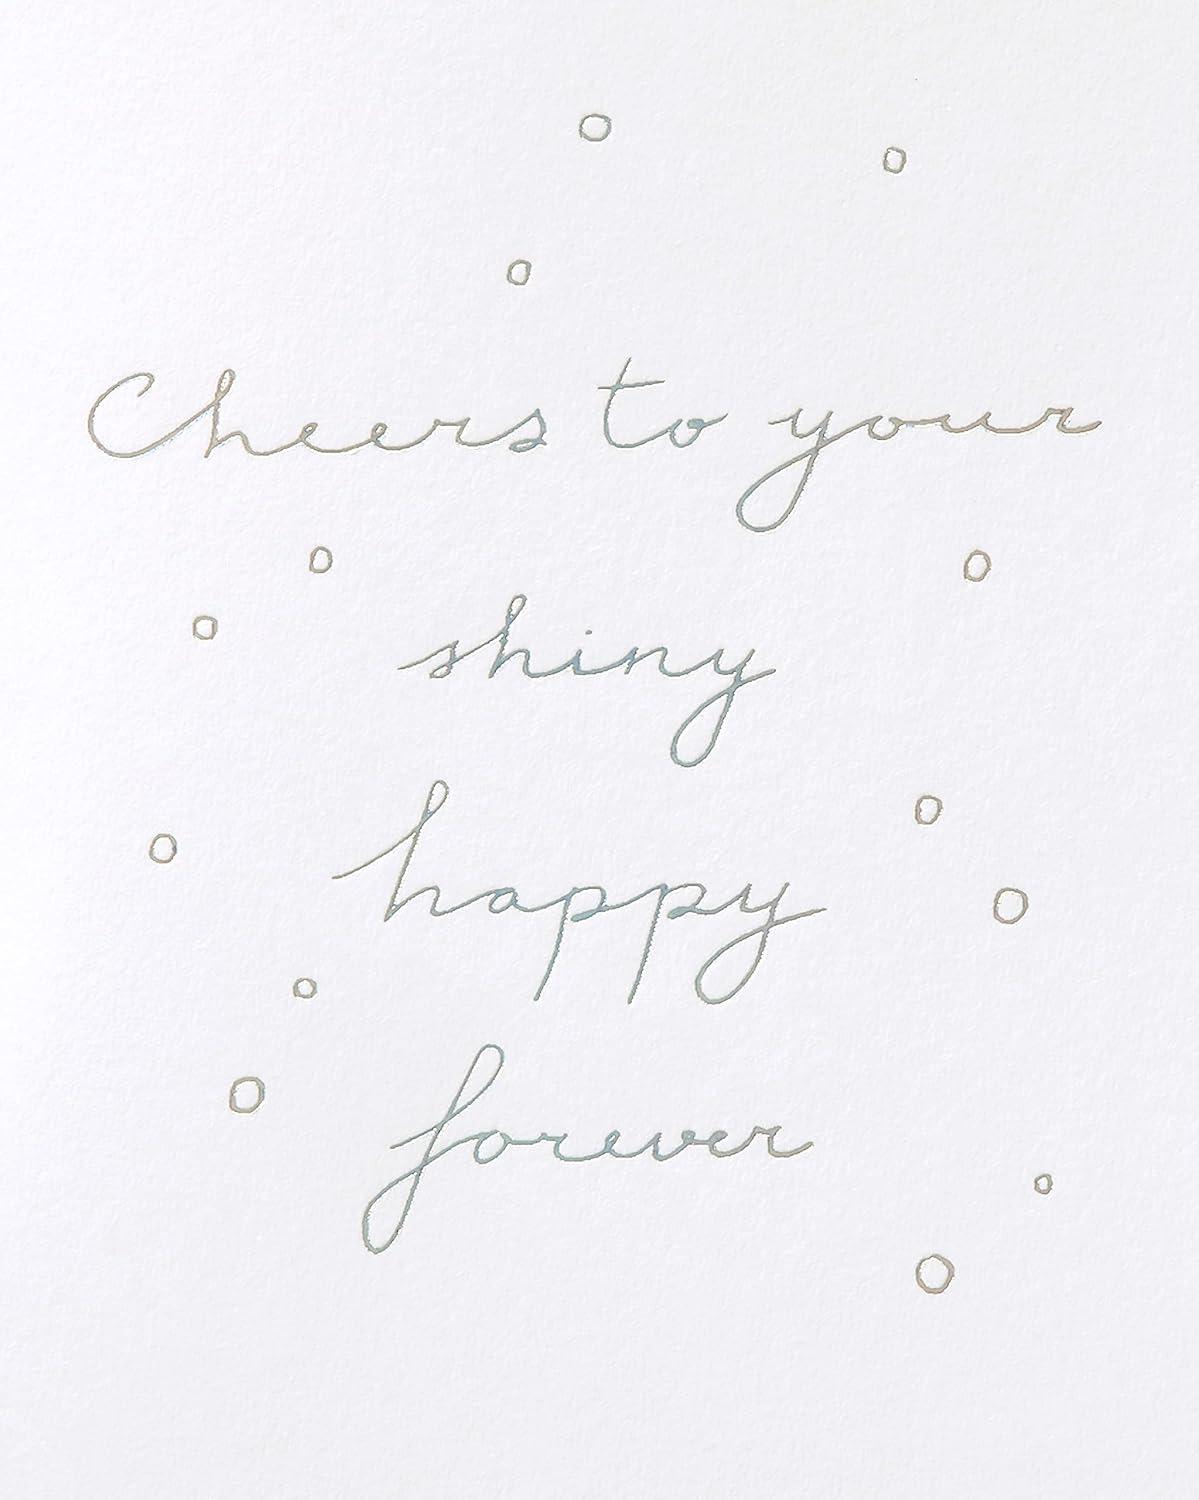 Cheers to your
shiny
happy
forever